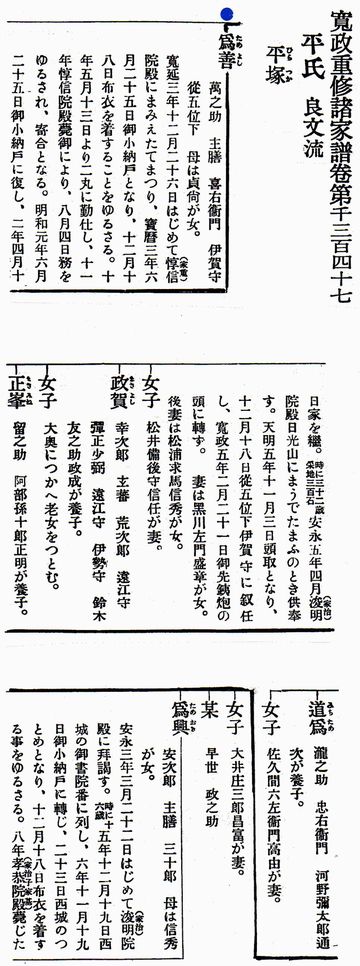 寬政重修諸家譜卷第千三百四十七
平氏 良文流
平塚 ひらつか
爲善 ためよし
萬之助 主膳 喜右衞門 伊賀守
從五位下 母は貞尙が女。
寬延三年十二月二十六日はじめて惇信(家重)
院殿にまみえたてまつり、寶曆三年六
月二十五日御小納戶となり、十二月十
八日布衣を着することをゆるさる。十
年五月十三日より二丸に勤仕し、十一
年惇信院殿薨御により、八月四日務を
ゆるされ、寄合となる。明和元年六月
二十五日御小納戶に復し、二年四月十
日家を繼。時に三十二歲 采地三百石 安永五年四月浚明(家治)
院殿日光山にまうでたまふのとき供奉
す。天明五年十一月三日頭取となり、
十二月十八日從五位下伊賀守に叙任
し、寬政五年二月二十一日御先鐵炮の
頭に轉ず。 妻は黑川左門盛章が女。
後妻は松浦求馬信秀が女。
女子 松井備後守信任が妻。
政賀 まさよし
幸次郞 主蕃 荒次郞 遠江守
彈正少弼 遠江守 伊勢守 鈴木
友之助政成が養子。
女子 大奧につかへ老女をつとむ。
正峯 まさみね 留之助 阿部孫十郞正明が養子。
道爲 みちため 瀧之助 忠右衞門 河野彌太郞通
次が養子。
女子 佐久間六左衞門高由が妻。
女子 大井庄三郞昌富が妻。
某 早世 政之助
爲興 ためおき
安次郞 主膳 三十郞 母は信秀
が女。
安永三年三月二十二日はじめて浚明院(家治)
殿に拜謁す。時に十六歲 五年十二月十九日西
城の御書院番に列し、六年十一月十九
日御小納戶に轉じ、二十三日西城のつ
とめとなり、十二月十八日布衣を着す
る事をゆるさる。八年孝恭院殿(家治子家基)薨じた